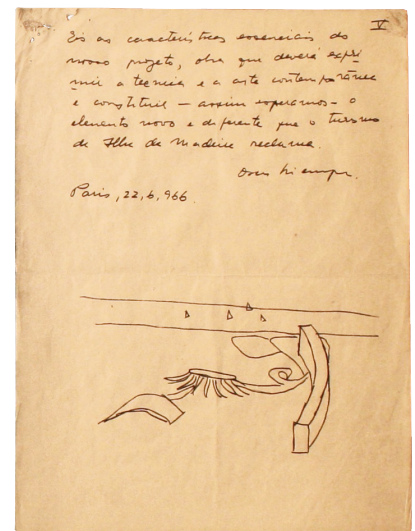 V
Eis as características essenciais do
novo projeto, obra que deverá expri-
mir a tecnica e a arte contemporânea
e constituir — assim esperamos — o
elemento novo e diferente que o turismo
da Ilha da Madeira reclama.
Oscar Niemeyer.
Paris, 22, 6, 966.